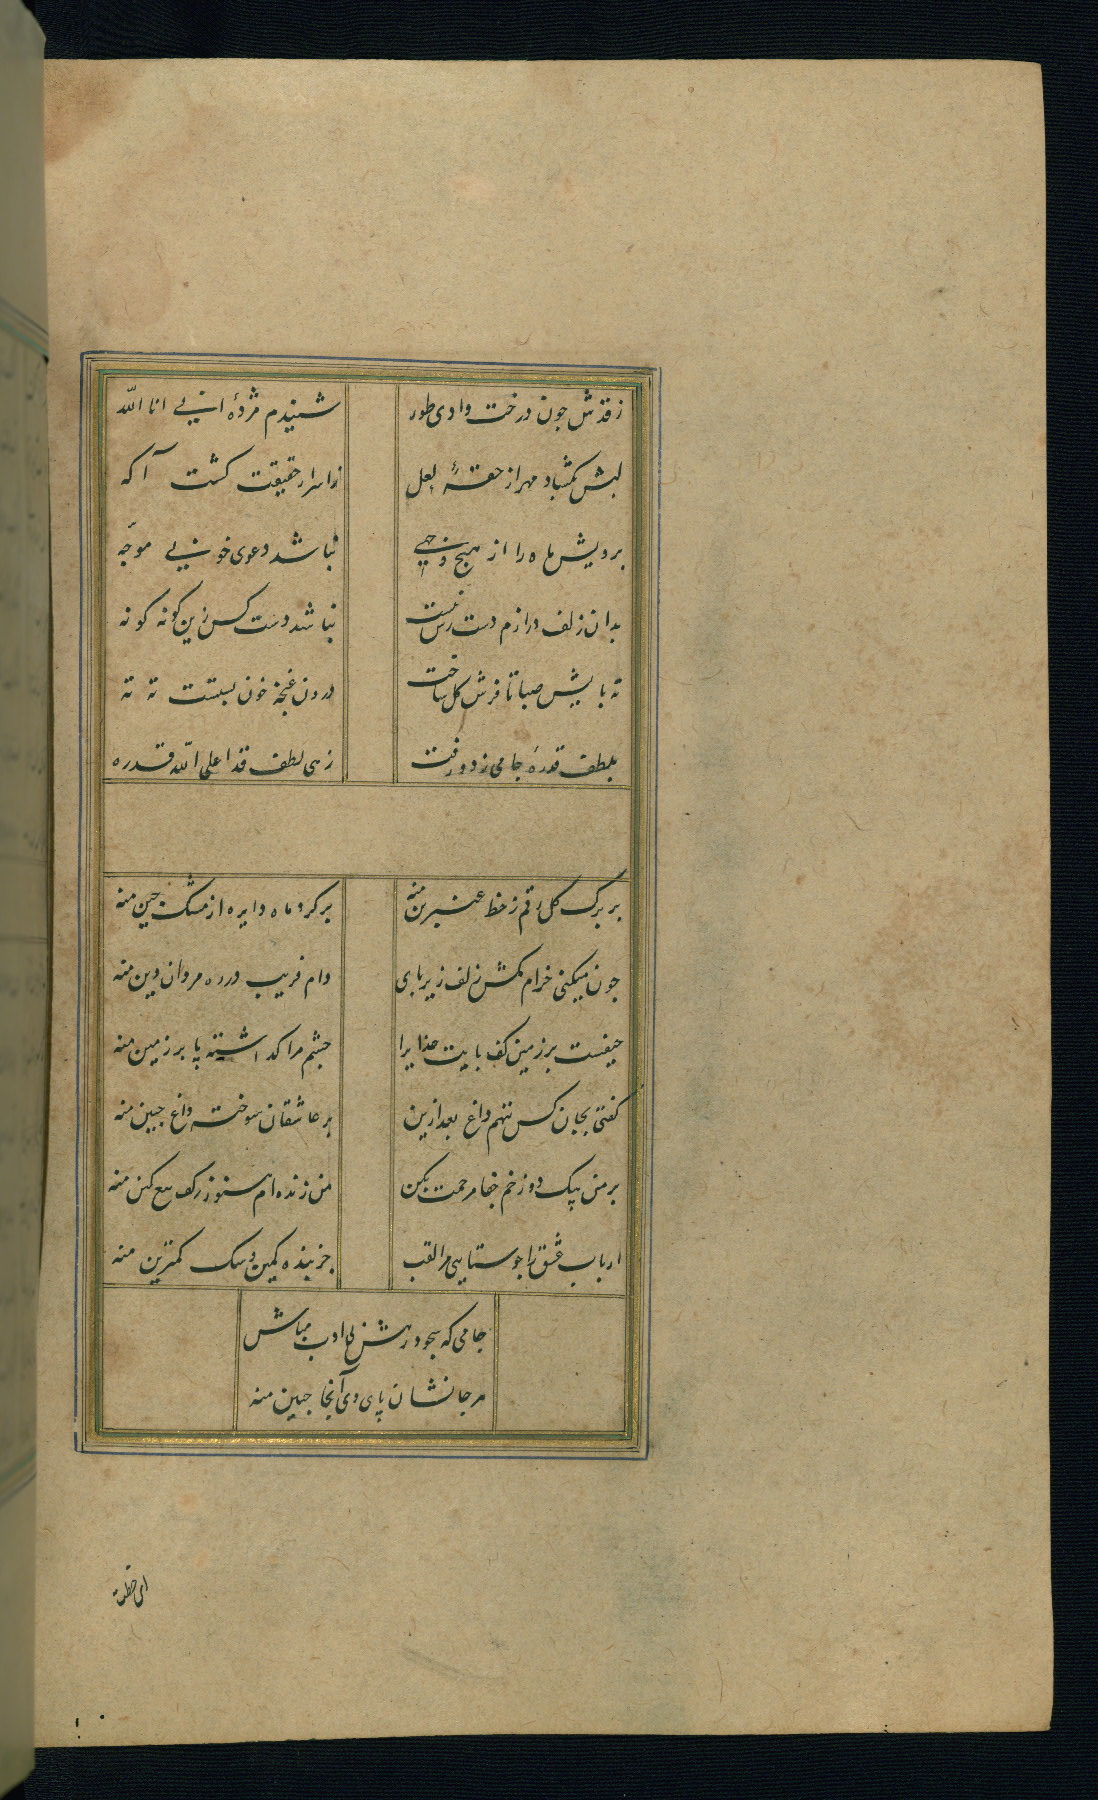 ز قدش جون درخت وادی طور شنیدم مژدهٔ انی انا الله
لبش بگشاد مهر از حقهٔ لعل ز اسرار حقیقت کشت آکه
برویش ماه را از هیچ وجهی نباشد دعوی خوبی موجّه
بدان زلف درازم دست رس نیست نباشد دست کس زین کونه کوته
ته پایش صبا تا فرش کل ساخت درون غنجه خون بستست ته ته
بلطف قدره جامی زد و رفت زهی لطف قد اعلی الله قدره
بر برک کل رقم ز خط عنبرین منه بر کرد ماه دایره از مشک جین منه
جون میکنی خرام مکش زلف زیر پای دام فریب در ره مردان دین منه
حیفست بر زمین کف پایت خدایرا جشم مرا کذاشته پا بر زمین منه
کفتی بجان کس ننهم داغ بعد ازین بر عاشقان سوخته داغ جبین منه
بر من بیک دو زخم جفا مرحمت بکن من زنده ام هنوز ز کف تیغ کین منه
ارباب عشق را جو ستایی مرا لقب جز بنده کمین و سک کمترین منه
جامی که سجود رهش بی ادب مباش
هر جا نشان پای وی آنجا جبین منه
ای خطت